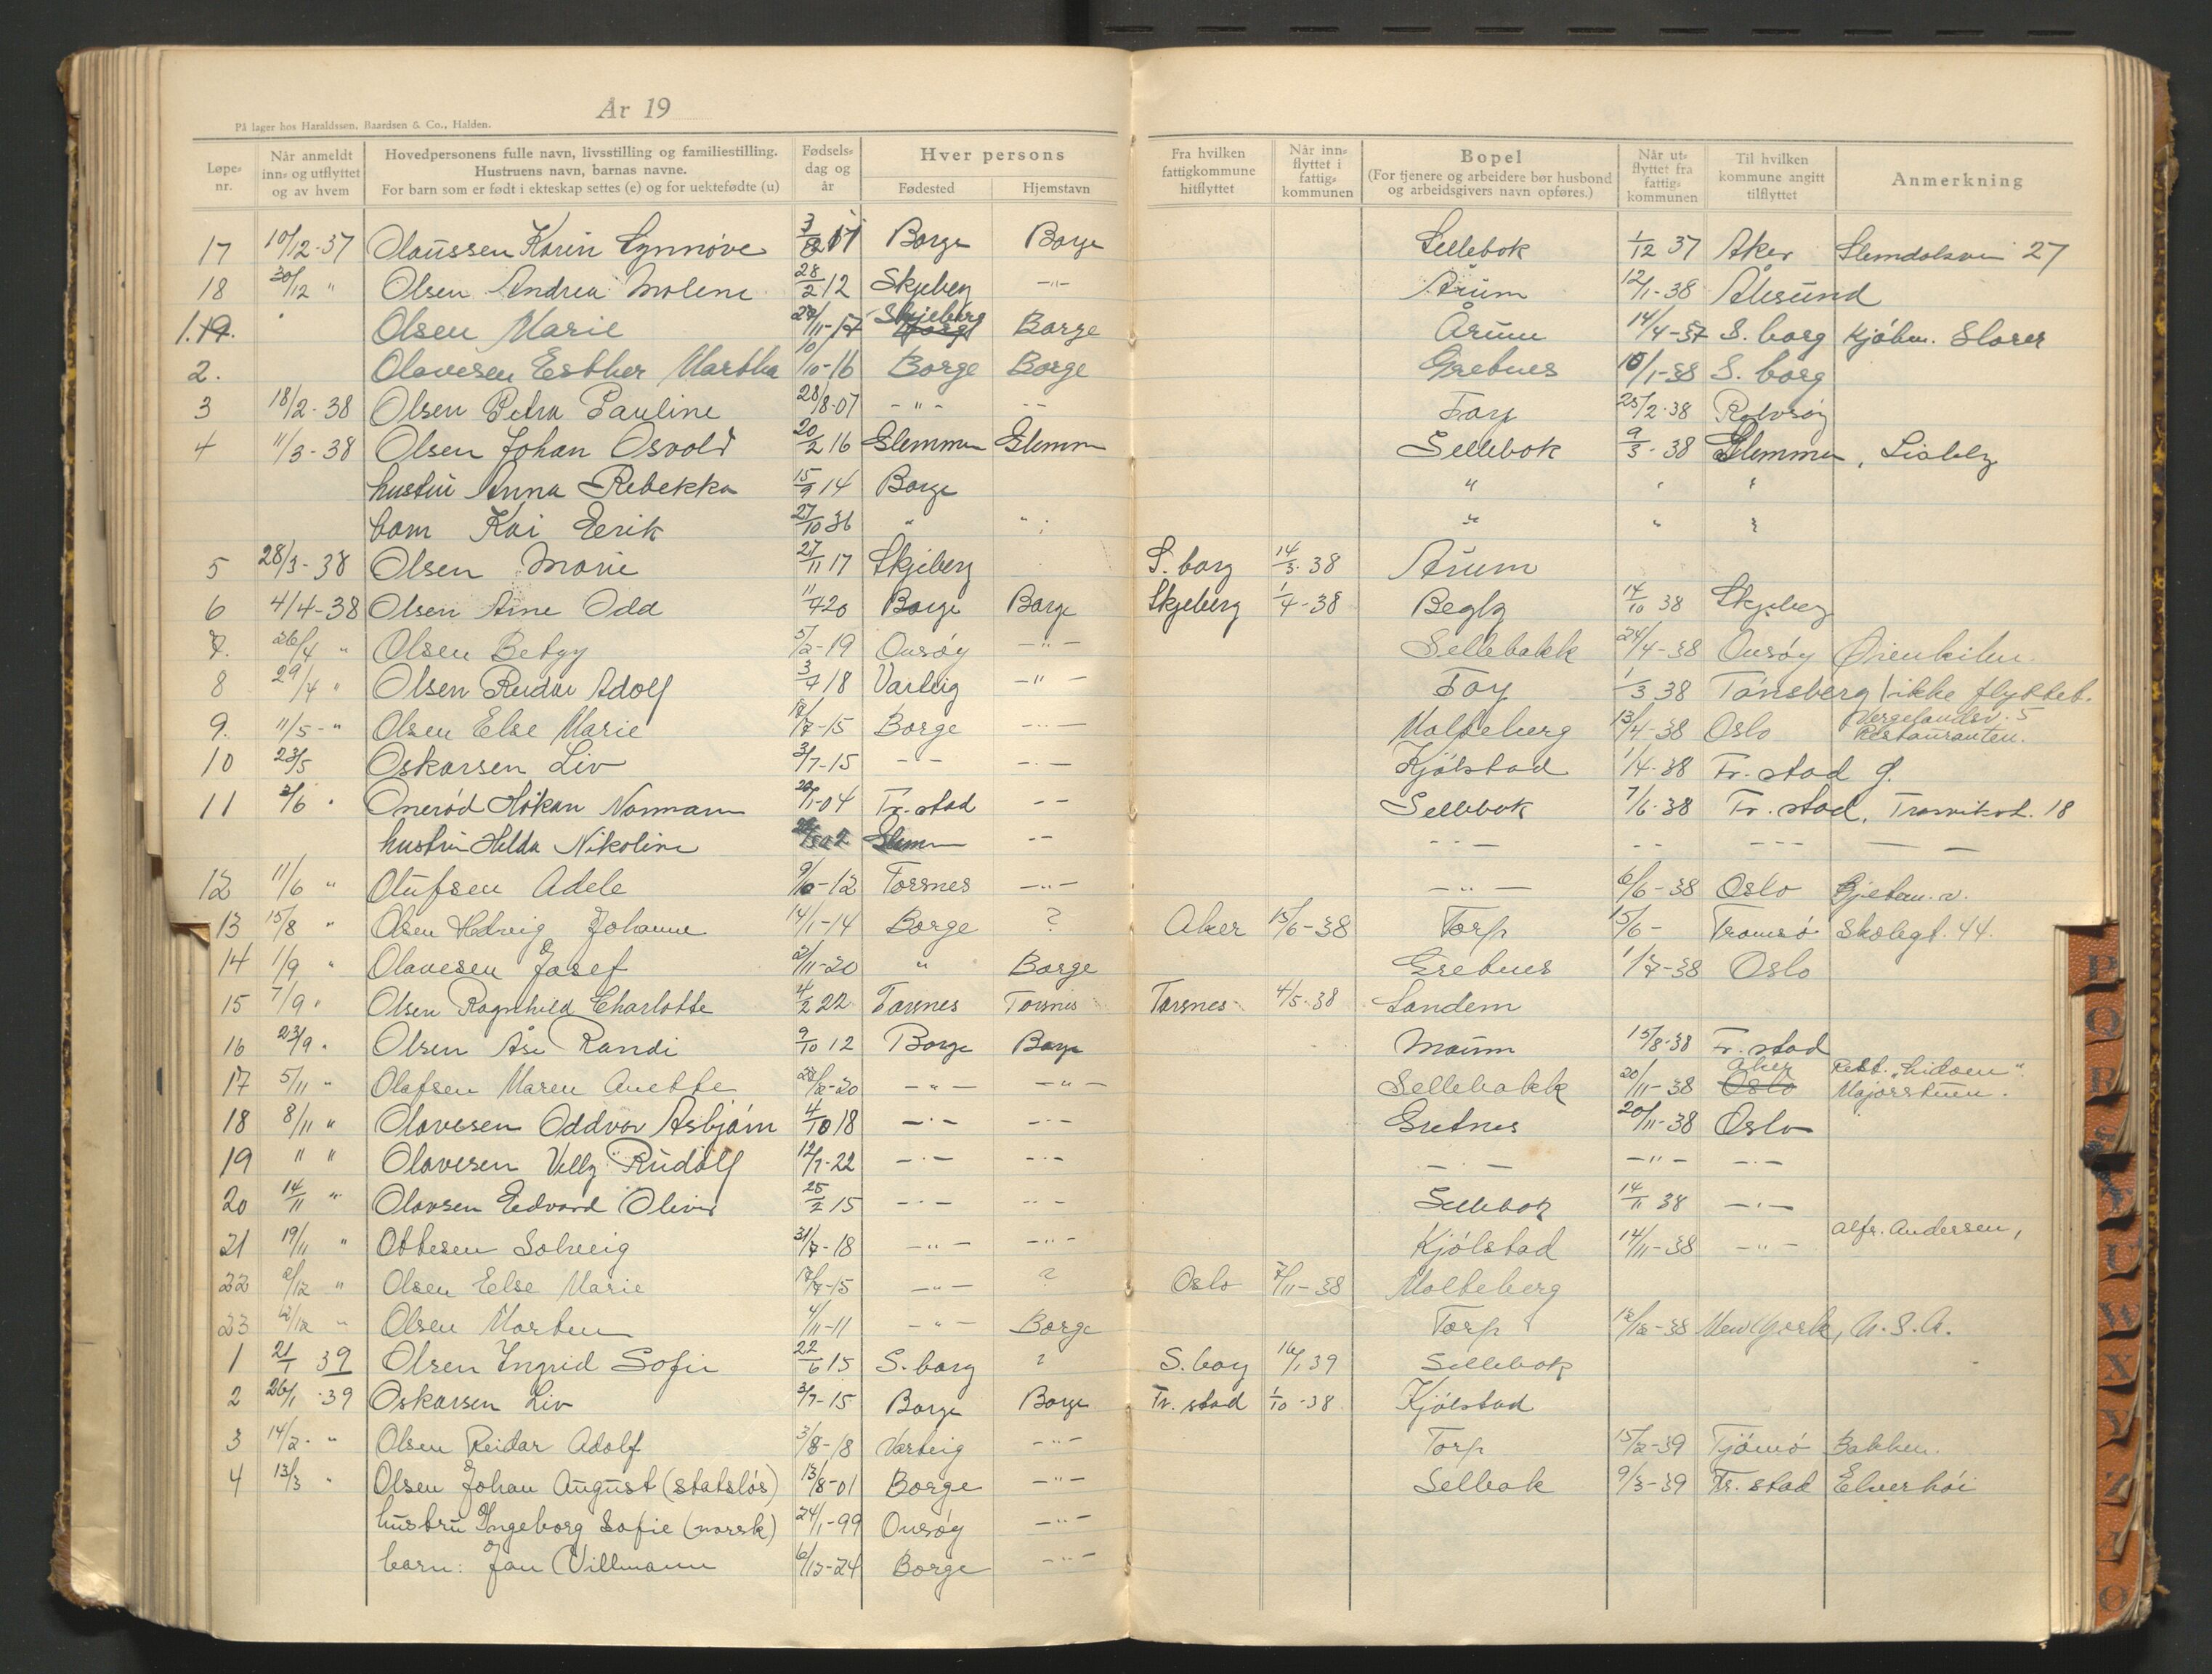 År 19
På lager hos Haraldssen, Baardsen & Co., Halden.
Løpe-nr. Når anmeldt inn- og utflyttet og av hvem Hovedpersonens fulle navn, livsstilling og familiestilling. Hustruens navn, barnas navne. For barn som er født i ekteskap settes (e) og for uektefødte (u) Fødsels-dag og år Hver persons Fødested Hjemstavn Fra hvilken fattigkommune hitflyttet Når inn-flyttet i fattig-kommunen Bopel (For tjenere og arbeidere bør husbond og arbeidsgivers navn opføres.) Når ut-flyttet fra fattig-kommunen Til hvilken kommune angitt tilflyttet Anmerkning
17 10/12-37 Olaussen Karin Synnøve Borge Borge Sellebok 1/12 37 Aker 27
18 30/12 " Olsen Andrea Molene 28/2 12 Skjeberg -"- Årum 12/1-38 Ålesund
1. 19. Olsen Marie Skjeberg Borge Årum 14/4-37 S. borg Kjøbm.
2. Olavesen Esther Martha 10/10-16 Borge Borge Grebnes 10/1-38 S. borg
3 18/2-38 Olsen Petra Pauline 28/8-07 -"- Torp 25/2-38 Rolvsøy
4 11/3-38 Olsen Johan Osvold 20/2 16 Glemmen Glemm Sellebok 9/3-38 Glemmen, Lisleby
hustru Anna Rebekka 15/9 14 Borge " " "
barn Kai Eerik 27/10 36 " " " "
5 28/3-38 Olsen Marie 27/11 17 Skjeberg S. borg 14/3-38 Årum
6 4/4-38 Olsen Arne Odd 11/4 20 Borge Borge Skjeberg 1/4-38 Begby 14/10 38 Skjeberg
7. 26/4 " Olsen Betzy 5/2-19 Onsøy -"- Sellebakk 24/4-38 Onsøy Ørenkilen.
8 29/4 " Olsen Reidar Adolf 3/7 18 Varteig -"- Torp 1/3 38 Tønsberg ikke flyttet.
9. 11/5-" Olsen Else Marie 17/7-15 Borge -"- Molteberg 13/4-38 Oslo Vergelandsv. 5 Restauranten.
10 23/5 Oskarsen Liv 3/7-15 - - -"- Kjølstad 1/4-38 Fr. stad g.
11 2/6 " Onerød Håkon Normann Fr. stad - - Sellebok 7/6-38 Fr. stad, Trosvikst. 18
hustru Hilda Nikoline Glemm - - - - - - - - - - - -
12 11/6 " Olufsen Adele 9/6-12 Torsnes -"- -"- 6/6-38 Oslo
13 15/8 " Olsen Hedvig Johanne 14/1-14 Borge ? Aker 15/6-38 Torp 15/6- Tromsø Skolegt. 44.
14 1/9 " Olavesen Josef 2/11-20 " Borge Grebnes 1/7-38 Oslo
15 7/9 " Olsen Ragnhild Charlotte 4/2 22 Torsnes Torsnes Torsnes 4/5-38 Sandem
16 23/9 " Olsen Åse Randi 9/10 12 Borge Borge Moum 15/8-38 Fr. stad
17 5/11 " Olafsen Maren Anette -"- -"- Sellebakk 20/11-38 Oslo Aker Rest. "Lidoen" Majorstuen.
18 8/11 " Olavesen Oddvar Asbjørn 4/10 18 -"- -"- Gretnes 20/11-38 Oslo
19 " " Olavesen Villy Rudolf 12/7-22 -"- -"- -"- -"- -"-
20 14/11 " Olavsen Edvard Oliver 25/2 15 -"- -"- Sellebok 14/11 38 -"-
21 19/11 " Ottesen Solveig 31/7-18 -"- -"- Kjølstad 14/11-38 -"- Alfr. Andersen,
22 2/12 " Olsen Else Marie 17/7-15 -"- ? Oslo 7/11-38 Molteberg
23 12/12 " Olsen Morten 4/11-11 -"- Borge Torp 12/12-38 New York, U. S. A.
1 21/1 39 Olsen Ingrid Sofie 22/6 15 S. borg ? S. borg 16/1 39 Sellebok
2 26/1-39 Oskarsen Liv 3/7-15 Borge Borge Fr. stad 1/10-38 Kjølstad
3 14/2-" Olsen Reidar Adolf 3/8-18 Varteig -"- Torp 15/2-39 Tjømø Bakken.
4 13/3 " Olsen Johan August (statsløs) 13/8-01 Borge -"- Sellbak 9/3-39 Fr. stad Elverhøi
hustru Ingeborg Sofie (norsk) 24/1-99 Onsøy -"-
barn: Jan Villmann 6/12-24 Borge -"-
U W X Y Z Æ Ø